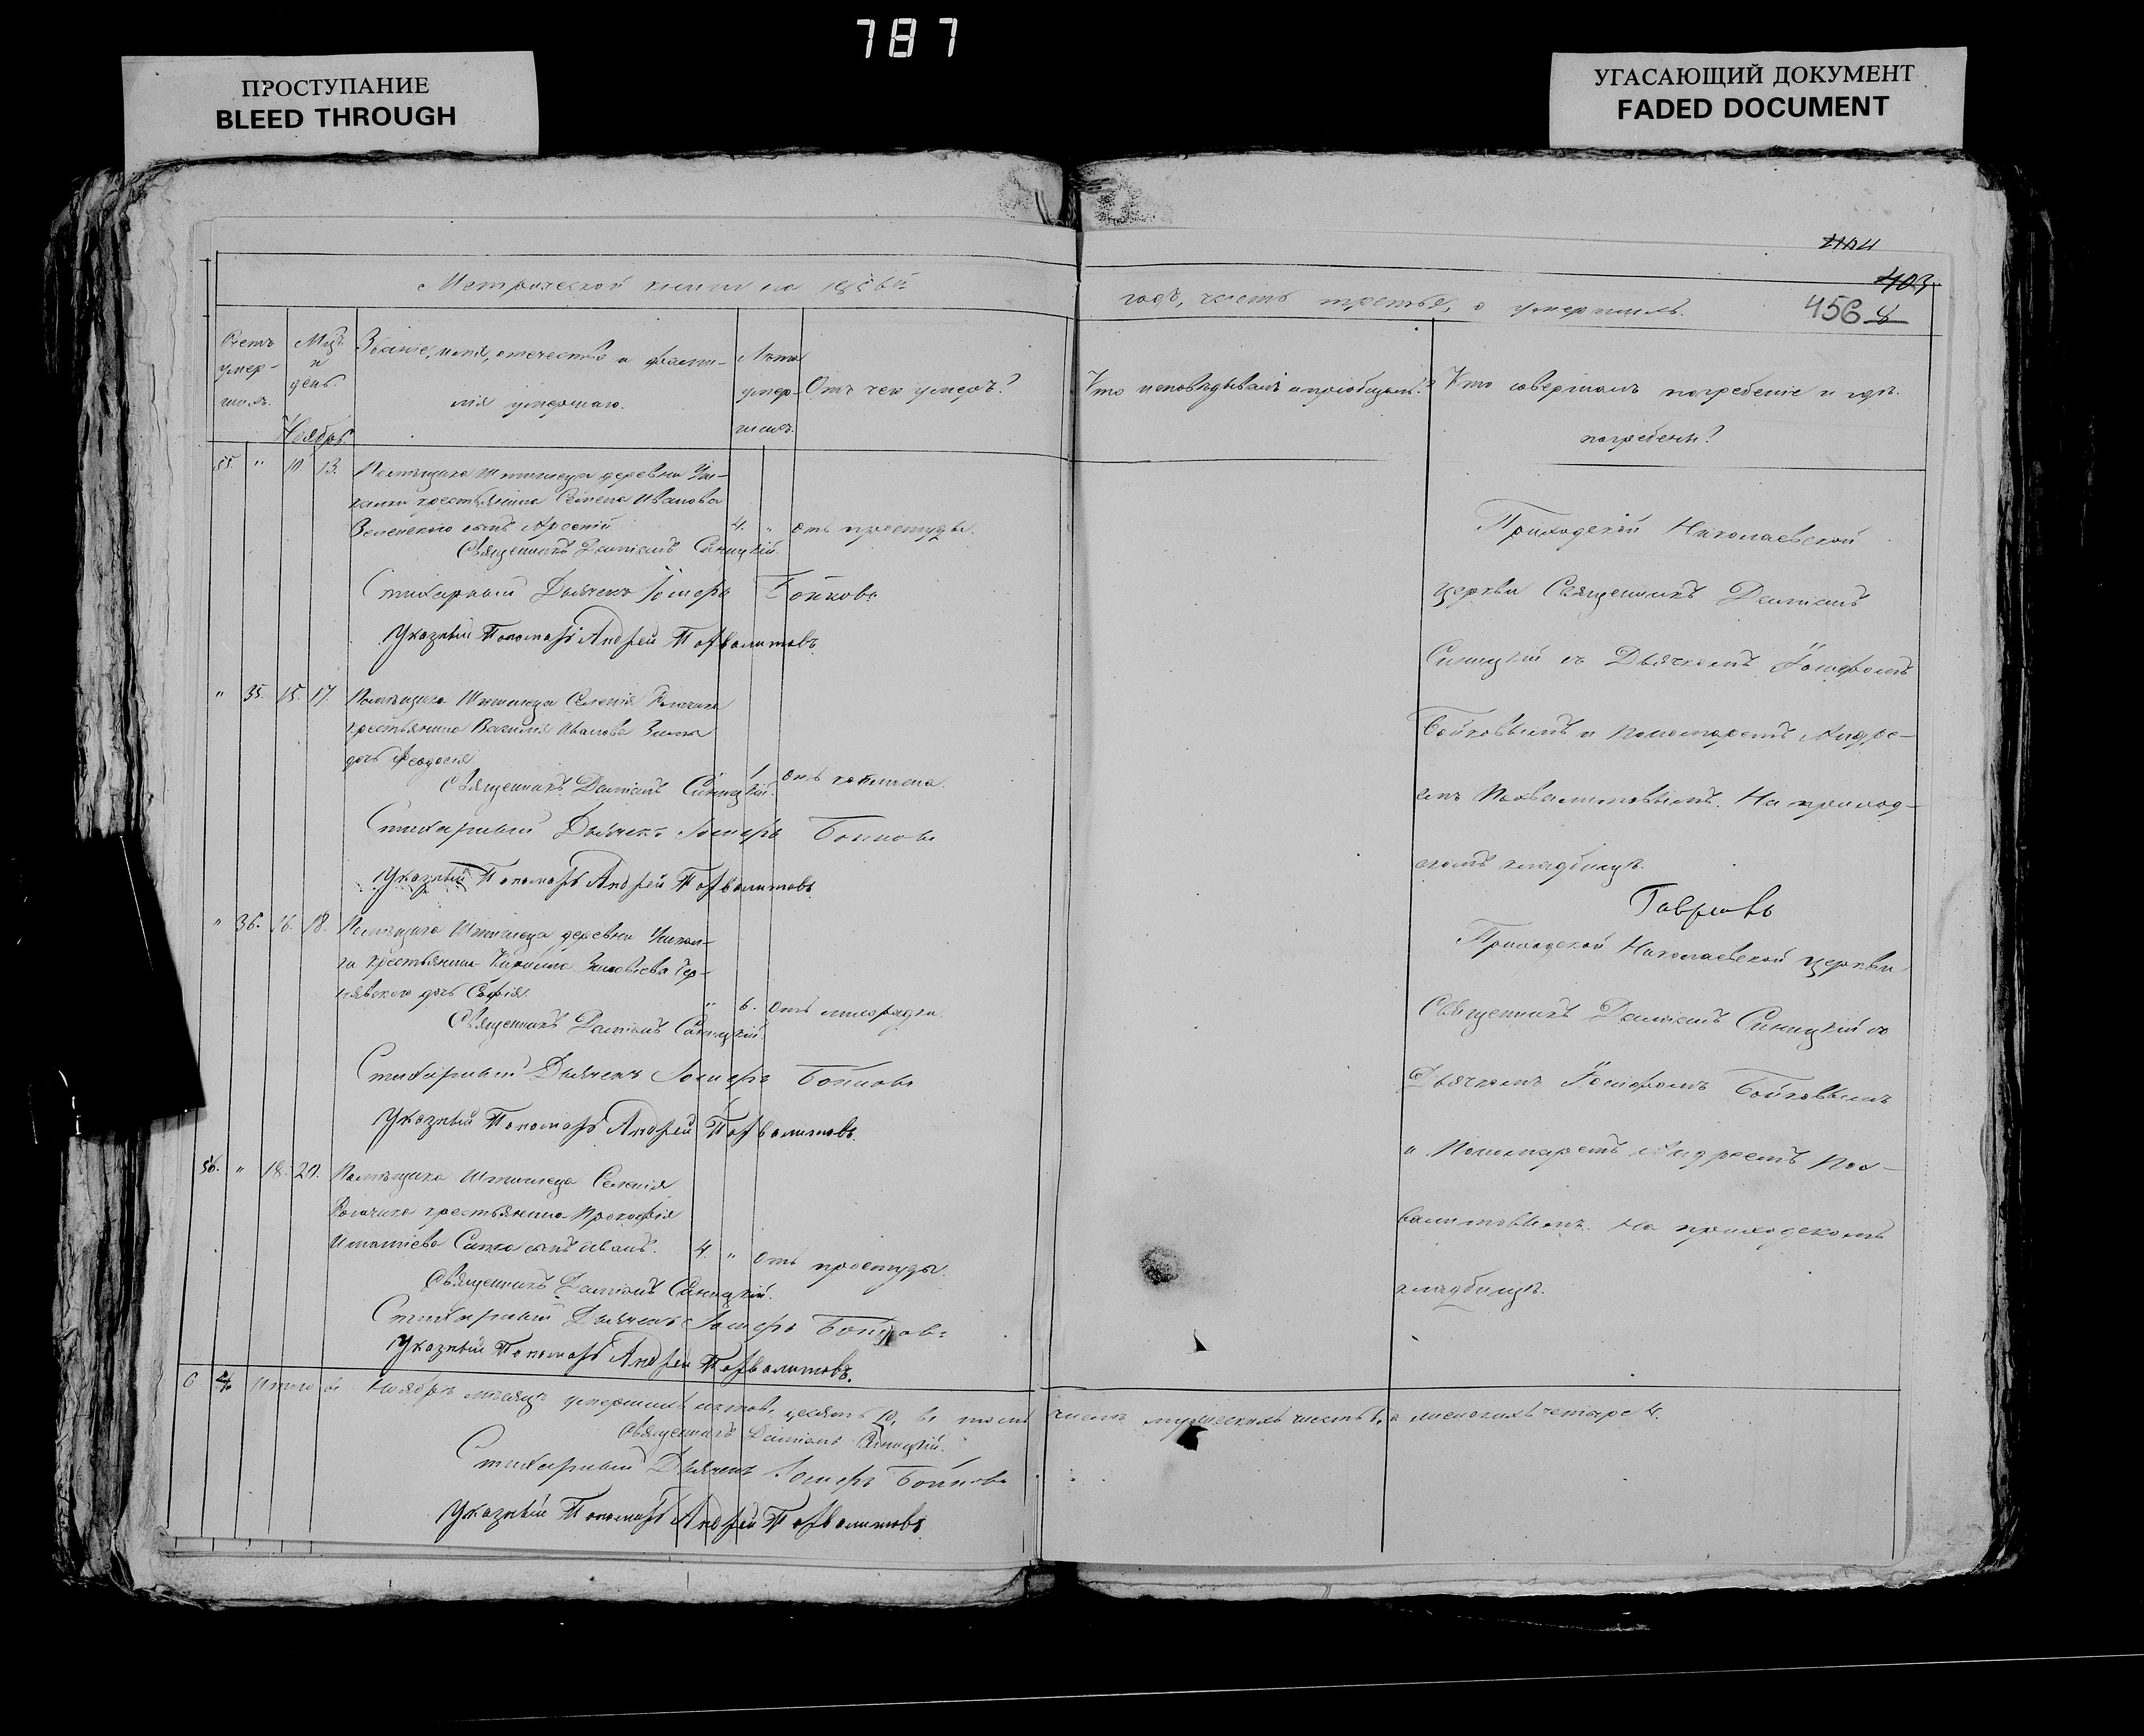 787
ПРОСТУПАНИЕ
BLEED THROUGH
УГАСАЮЩИЙ ДОКУМЕНТ
FADED DOCUMENT
Метрической книги на
годъ, часть третья, о умершихъ.
456
Счетъ умер-шихъ.
Мцъ и день.
Званіе, имя, отечество и фами-
лія умершаго.
Лѣта умер-шихъ.
Отъ чего умеръ?
Кто исповѣдывалъ и пріобщалъ?
Кто совершалъ погребеніе и гдѣ
погребены?
Ноябрь
55. " 10 13. Помѣщика деревни
крестьянина Семена Иванова
сынъ Арсеній 4. " отъ простуды.
Священникъ Даміанъ Синицкій.
Стихарный Дьячекъ Іосифъ Бойковъ
Указный Пономарь Андрей Похвалитовъ.
" 35. 15. 17. Помѣщика Селенія
крестьянина Василія Иванова
дочь Феодосія " 1 отъ
Священникъ Даміанъ Синицкій.
Стихарный Дьячекъ Іосифъ Бойковъ
Указный Пономарь Андрей Похвалитовъ.
" 36. 16. 18. Помѣщика деревни
ка крестьянина Кирилла
дочь Софія. " 6. отъ лихорадки.
Священникъ Даміанъ Синицкій
Стихарный Дьячекъ Іосифъ Бойковъ
Указный Пономарь Андрей Похвалитовъ.
56. " 18. 20. Помѣщика Селенія
крестьянина Прокофія
Игнатіева сынъ Иванъ. 4. " отъ простуды.
Священникъ Даміанъ Синицкій.
Стихарный Дьячекъ Іосифъ Бойковъ
Указный Пономарь Андрей Похвалитовъ.
Приходской Николаевской
церкви Священникъ Даміанъ
Синицкій съ Дьячкомъ Іосифомъ
Бойковымъ и Пономаремъ Андре-
емъ Похвалитовымъ. На приход-
скомъ кладбищѣ.
Приходской Николаевской церкви
Священникъ Даміанъ Синицкій съ
Дьячкомъ Іосифомъ Бойковымъ
и Пономаремъ Андреемъ Пох-
валитовымъ. На приходскомъ
кладбищѣ.
6 4 Итого въ Ноябрѣ мѣсяцѣ умершихъ десять 10, въ томъ числѣ мужескихъ шесть 6, а женскихъ четыре 4.
Священникъ Даміанъ Синицкій.
Стихарный Дьячекъ Іосифъ Бойковъ
Указный Пономарь Андрей Похвалитовъ.